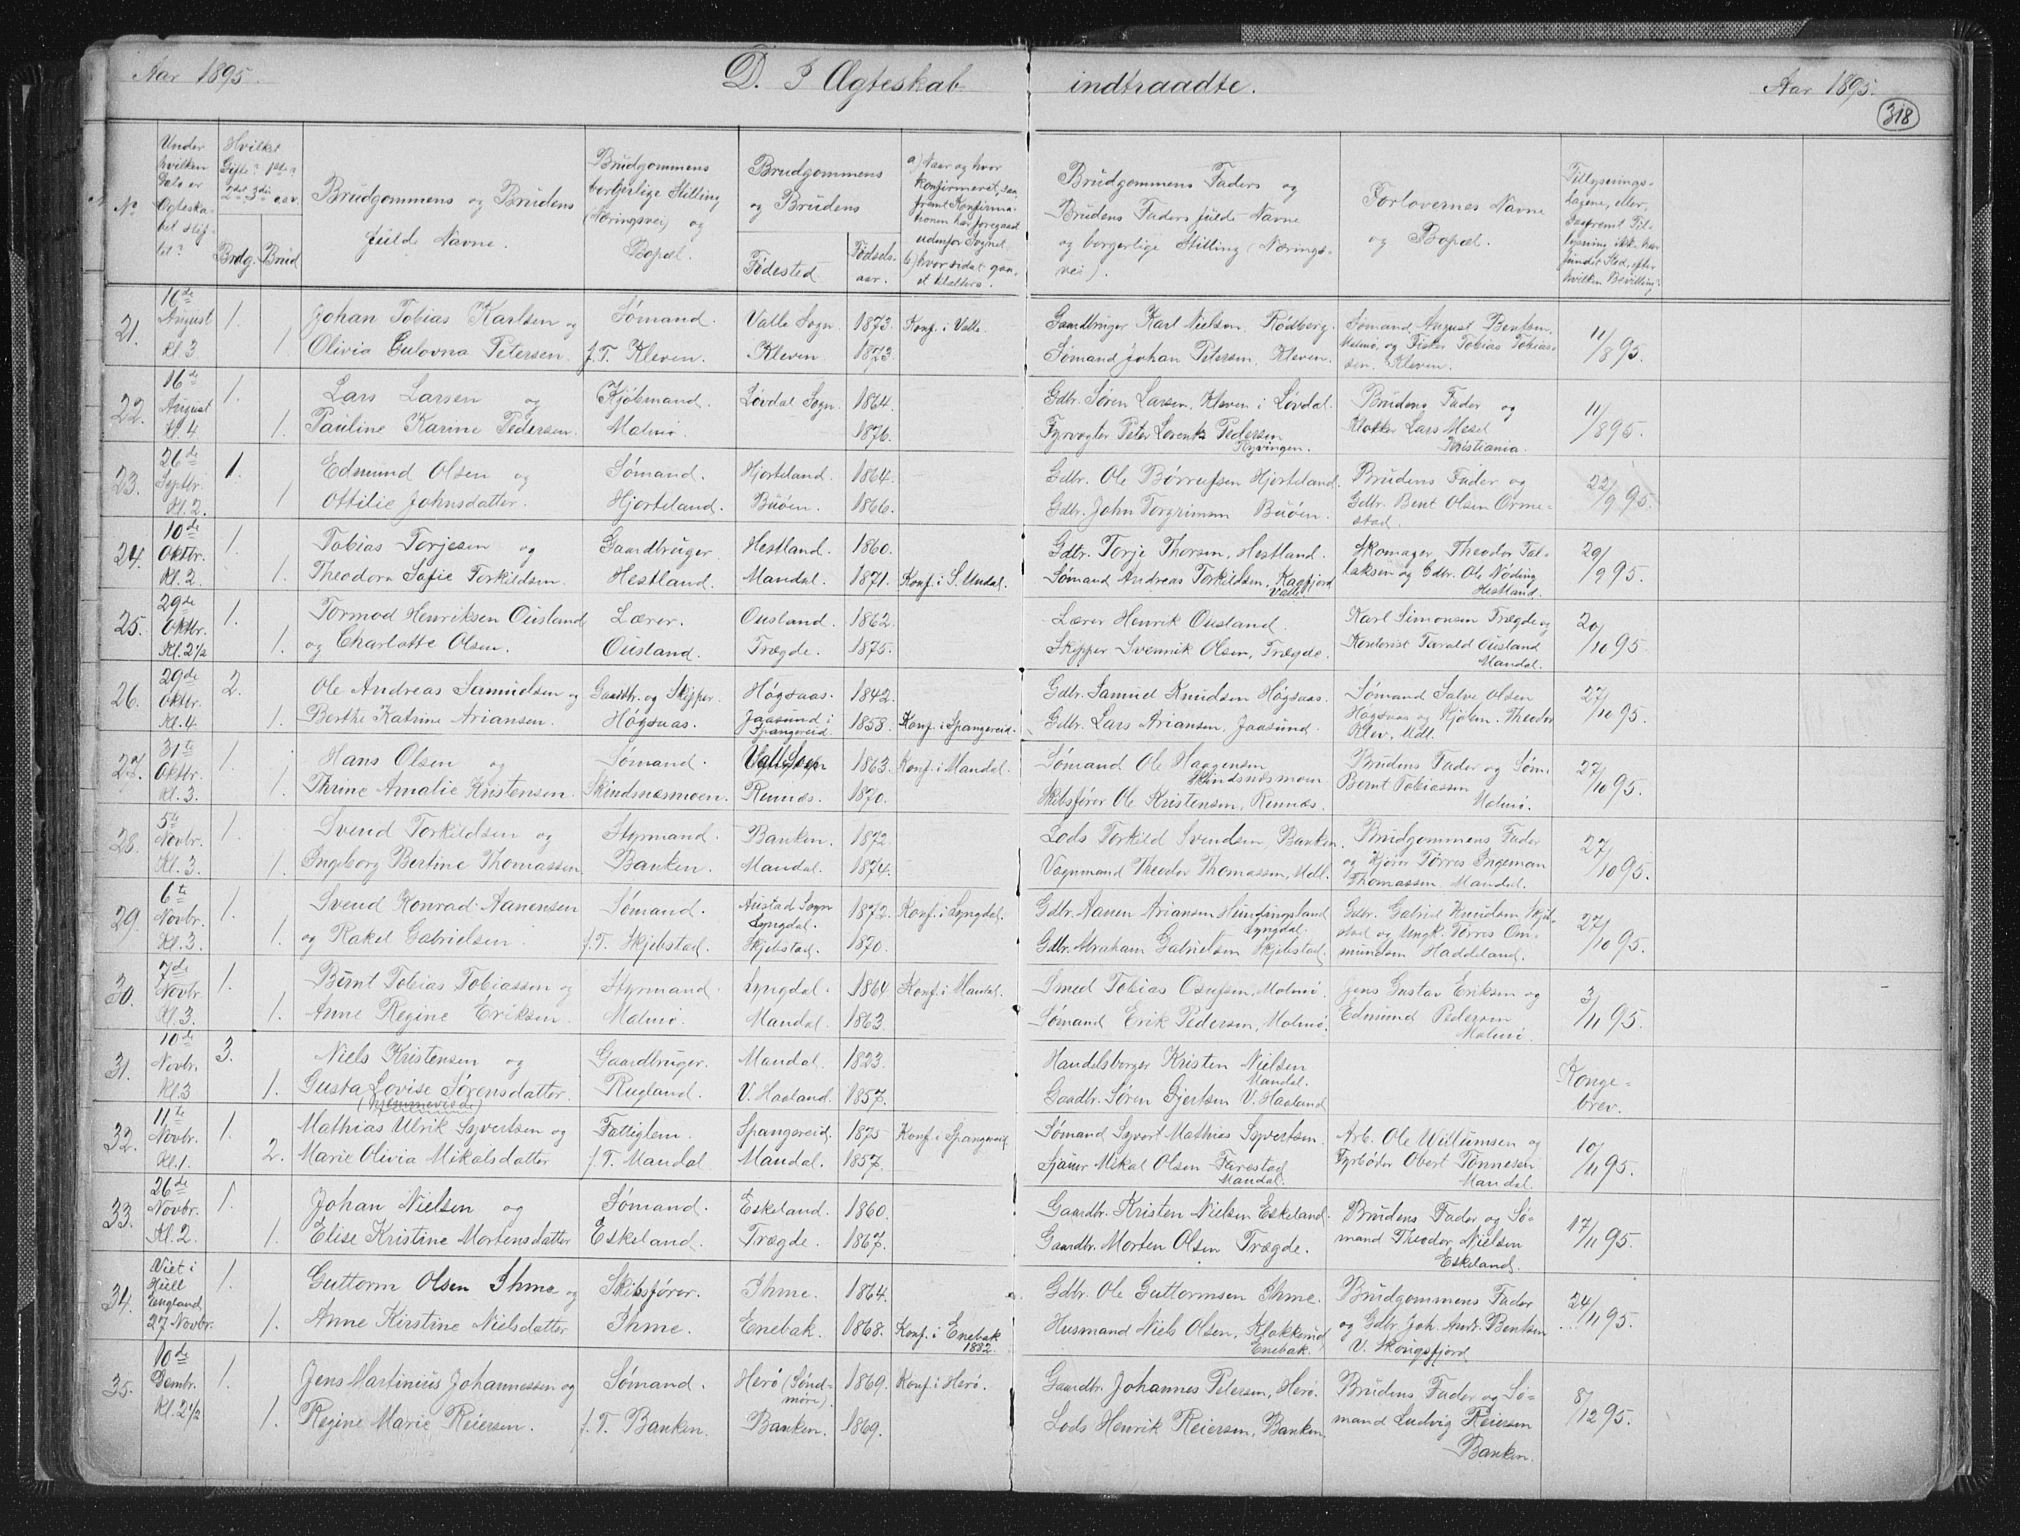 Aar 1895. D. I Ægteskab indtraadte. Aar 1895.
318
No
Under hvilken Dato er Ægteskabet stiftet?
Hvilket Gifte? 1ste? 2det 3die osv.
Brdg. Brud
Brudgommens og Brudens fulde Navne.
Brudgommens borgerlige Stilling (Næringsvei) og Bopæl.
Brudgommens og Brudens
Fødested Fødselsaar.
a) Naar og hvor konfirmeret, saafremt Konfirmationen har foregaaet udenfor Sognet.
Brudgommens Faders og Brudens Faders fulde Navne og borgerlige Stilling (Næringsvei).
Forlovernes Navne og Bopæl.
Tillysningsdagene, eller, saafremt Tillysning ikke har fundet Sted, efter hvilken Bevilling?
21. 16de August Kl. 3 1. Johan Tobias Karlsen og Sømand. Valle Sogn. 1873. Konf. i Valle. Gaardbruger Karl Nielsen, Rødberg. Sømand August Bentsen, 11/8 95.
1 Olivia Gulovna Petersen. f. T. Kleven. Kleven. 1873. Sømand Johan Petersen, Kleven. Malmø, og Fisker Tobias Tobiassen, Kleven.
22. 16de August Kl. 4 1. Lars Larsen og Kjøbmand. Løvdal Sogn. 1864. Gdbr. Søren Larsen, Kleven i Løvdal. Brudens Fader og 11/8 95.
1. Pauline Karine Pedersen. Malmø. 1876. Fyrvogter Peter Lorentz Pedersen Ryvingen. Klokker Lars Mesel Kristiania.
23. 26de Septbr. Kl. 2. 1. Edmund Olsen og Sømand. Hjorteland. 1864. Gdbr. Ole Børrufsen Hjorteland. Brudens Fader og 22/9 95.
1 Ottilie Johnsdatter. Hjorteland. Buøen. 1866. Gdbr. John Torgrimsen Buøen. Gdbr. Bent Olsen Ormestad.
24. 10de Oktbr. Kl. 2. 1. Tobias Torjesen og Gaardbruger. Hestland. 1860. Gdbr. Torje Thorsen, Hestland. Skomager Theodor Tallaksen 29/9 95.
1. Theodora Sofie Torkildsen. Hestland. Mandal. 1871. Konf. i S. Undal. Sømand Andreas Torkildsen, Kagfjord Valle. og Gdbr. Ole Nøding Hestland.
25. 29de Oktbr. Kl. 2 1/2 1. Tormod Henriksen Ousland Lærer. Ousland. 1862. Lærer Henrik Ousland. Karl Simonsen Trægde og 20/10 95.
1. og Charlotte Olsen. Ousland. Trægde. 1875. Skipper Svennik Olsen, Trægde. Kontorist Tarald Ousland Mandal.
26. 29de Oktbr. Kl. 4. 2. Ole Andreas Samuelsen og Gaardbr. og Skipper. Høgsaas. 1842. Gdbr. Samuel Knudsen Høgsaas. Sømand Salve Olsen 27/10 95.
1. Berthe Katrine Ariansen. Høgsaas. Jaasund i Spangereid. 1858. Konf. i Spangereid. Gdbr. Lars Ariansen, Jaasund. Høgsaas og Kjøbm. Theodor Klev, Mdl.
27. 31te Oktbr. Kl. 3. 1. Hans Olsen og Sømand. Valle Sogn 1863. Konf. i Mandal. Sømand Ole Haagensen Skindsnæsmoen. Brudens Fader og Søm. 27/10 95.
1. Thrine Amalie Kristensen. Skindsnæsmoen. Rennæs. 1870. Skibsfører Ole Kristensen, Rennæs. Bernt Tobiassen Malmø.
28. 5te Novbr. Kl. 3. 1. Svend Torkildsen og Styrmand. Banken. 1872. Lods Torkild Svendsen, Banken. Brudgommens Fader 27/10 95.
1. Ingeborg Bertine Thomassen Banken. Mandal. 1874. Vognmand Theodor Thomassen, Mdl. og Kjører Tørres Ingeman Thomassen, Mandal.
29. 6te Novbr. Kl. 3. 1. Svend Konrad Aanensen Sømand. Austad Sogn Lyngdal. 1872. Konf. i Lyngdal. Gdbr. Aanen Ariansen Lyngdal. Gdbr. Gabriel Knudsen, Skjebstad 27/10 95.
1. og Rakel Gabrielsen. f. T. Skjebstad. Skjebstad. 1870. Gdbr. Abraham Gabrielsen Skjebstad. og Ungk. Tørres Ommundsen Haddeland.
30. 7de Novbr. Kl. 3. 1. Bernt Tobias Tobiassen og Styrmand. Lyngdal. 1864 Konf. i Mandal. Smed Tobias Osufsen, Malmø. Jens Gustav Eriksen og 3/11 95.
1. Anne Regine Eriksen. Malmø. Mandal. 1863. Sømand Erik Pedersen, Malmø. Edmund Pedersen Malmø.
31. 10de Novbr. Kl. 3 3. Niels Kristensen og Gaardbruger. Mandal. 1823. Handelsborger Kristen Nielsen Mandal. Kongebrev.
1. Gusta Lovise Sørensdatter. (hjemmeviede) Rugland. V. Haaland. 1857. Gaardbr. Søren Gjertsen V. Haaland
32. 11te Novbr. Kl. 1. 1. Mathias Ulrik Syvertsen og Fattiglem. Spangereid. 1875 Konf. i Spangereid Sømand Syvert Mathias Syvertsen. Arb. Ole Willumsen og 10/11 95.
2. Marie Olivia Mikalsdatter f. T. Mandal. Mandal. 1857. Sjauer Mikal Olsen Farestad Mandal. Fyrbøder Obert Tønnesen Mandal.
33. 26de Novbr. Kl. 2. 1. Johan Nielsen og Sømand. Eskeland. 1860. Gaardbr. Kristen Nielsen Eskeland. Brudens Fader og Sømand 17/11 95.
1. Elise Kristine Mortensdatter Eskeland. Trægde. 1867. Gaardbr. Morten Olsen Trægde. Theodor Nielsen Eskeland.
34. Viet i Hull England, 27 Novbr. 1. Guttorm Olsen Ihme og Skibsfører. Ihme. 1864. Gdbr. Ole Guttormsen Ihme. Brudgommens Fader 24/11 95.
1. Anne Kirstine Nielsdatter Ihme. Enebak. 1868. Konf. i Enebak 1882. Husmand Niels Olsen, Klokkerud Enebak. og Gdbr. Joh. Andr. Bentsen V. Skougsfjord
35. 10de Dembr. Kl. 2 1/2 1. Jens Martinius Johannessen og Sømand. Herø (Søndmøre). 1869. Konf. i Herø. Gaardbr. Johannes Petersen, Herø. Brudens Fader og Sømand 8/12 95.
1. Regine Marie Reiersen. f. T. Banken. Banken. 1869. Lods Henrik Reiersen, Banken. Ludvig Reiersen Banken.